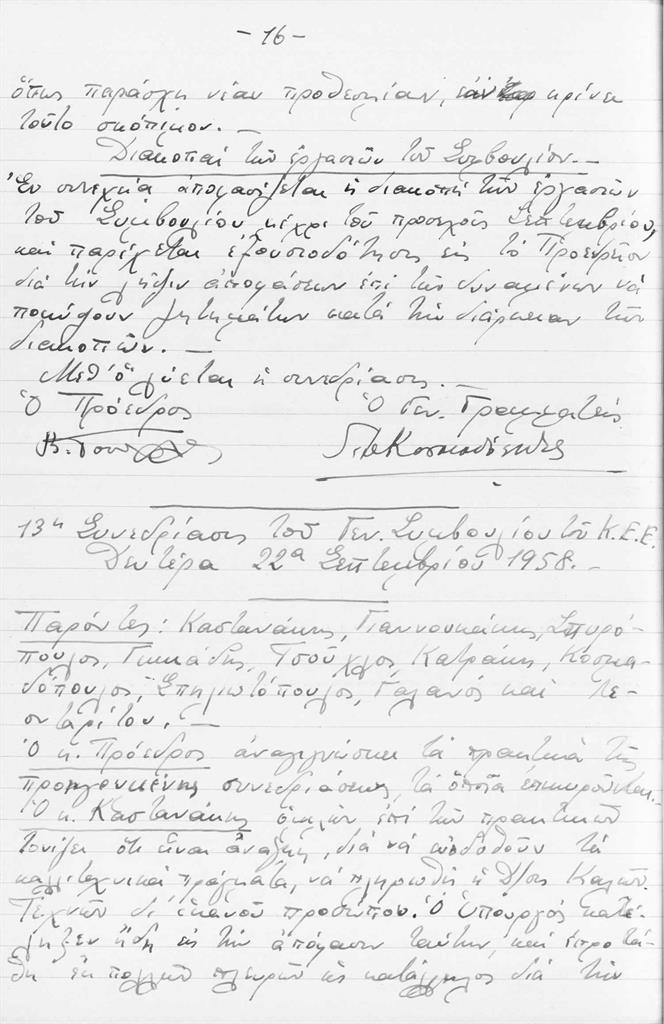 - 16 -
ὅπως παράσχῃ νέαν προθεσμίαν, ἐὰν κρίνει
τοῦτο σκόπιμον. —
Διακοπαὶ τῶν ἐργασιῶν τοῦ Συμβουλίου. —
Ἐν συνεχείᾳ ἀποφασίζεται ἡ διακοπὴ τῶν ἐργασιῶν
τοῦ Συμβουλίου μέχρι τοῦ προσεχοῦς Σεπτεμβρίου,
καὶ παρέχεται ἐξουσιοδότησις εἰς τὸ Προεδρεῖον
διὰ τὴν λῆψιν ἀποφάσεων ἐπὶ τῶν δυναμένων νὰ
προκύψουν ζητημάτων κατὰ τὴν διάρκειαν τῶν
διακοπῶν. —
Μεθ' ὃ λύεται ἡ συνεδρίασις. —
Ὁ Πρόεδρος Ὁ Γεν. Γραμματεὺς
13η Συνεδρίασις τοῦ Γεν. Συμβουλίου τοῦ Κ.Ε.Ε.
Δευτέρα 22α Σεπτεμβρίου 1958. —
Παρόντες: Καστανάκης, Γιαννουκάκης, Σπυρό-
πουλος, Τσοῦχλος, Κατράκη, Κοσμα-
δόπουλος, Σπηλιωτόπουλος, Γαλανὸς καὶ Λε-
ονταρίτου. —
Ὁ κ. Πρόεδρος ἀναγιγνώσκει τὰ πρακτικὰ τῆς
προηγουμένης συνεδριάσεως, τὰ ὁποῖα ἐπικυροῦνται.
Ὁ κ. Καστανάκης ὁμιλῶν ἐπὶ τῶν πρακτικῶν
τονίζει ὅτι εἶναι ἀνάγκη, διὰ νὰ τὰ
καλλιτεχνικὰ πράγματα, νὰ πληρωθῇ ἡ Δ/σις Καλῶν
Τεχνῶν δι' ἱκανοῦ προσώπου. Ὁ Ὑπουργὸς κατέ-
ληξεν ἤδη εἰς τὴν ἀπόφασιν ταύτην, καὶ ἐπροτά-
θη ἐκ πολλῶν πλευρῶν ὡς κατάλληλος διὰ τὴν